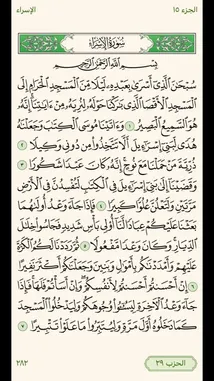 الجزء ١٥
الإسراء
سُورَةُ الإِسْرَاءِ
بِسْمِ اللَّهِ الرَّحْمَٰنِ الرَّحِيمِ
سُبْحَٰنَ الَّذِي أَسْرَىٰ بِعَبْدِهِ لَيْلًا مِّنَ الْمَسْجِدِ الْحَرَامِ إِلَى
الْمَسْجِدِ الْأَقْصَا الَّذِي بَٰرَكْنَا حَوْلَهُ لِنُرِيَهُ مِنْ ءَايَٰتِنَا إِنَّهُ
هُوَ السَّمِيعُ الْبَصِيرُ ١ وَءَاتَيْنَا مُوسَى الْكِتَٰبَ وَجَعَلْنَٰهُ
هُدًى لِّبَنِي إِسْرَٰٓءِيلَ أَلَّا تَتَّخِذُوا مِن دُونِي وَكِيلًا ٢
ذُرِّيَّةَ مَنْ حَمَلْنَا مَعَ نُوحٍ إِنَّهُ كَانَ عَبْدًا شَكُورًا ٣
وَقَضَيْنَا إِلَىٰ بَنِي إِسْرَٰٓءِيلَ فِي الْكِتَٰبِ لَتُفْسِدُنَّ فِي الْأَرْضِ
مَرَّتَيْنِ وَلَتَعْلُنَّ عُلُوًّا كَبِيرًا ٤ فَإِذَا جَآءَ وَعْدُ أُولَىٰهُمَا
بَعَثْنَا عَلَيْكُمْ عِبَادًا لَّنَا أُولِي بَأْسٍ شَدِيدٍ فَجَاسُوا خِلَٰلَ
الدِّيَارِ وَكَانَ وَعْدًا مَّفْعُولًا ٥ ثُمَّ رَدَدْنَا لَكُمُ الْكَرَّةَ
عَلَيْهِمْ وَأَمْدَدْنَٰكُم بِأَمْوَٰلٍ وَبَنِينَ وَجَعَلْنَٰكُمْ أَكْثَرَ نَفِيرًا
٦ إِنْ أَحْسَنتُمْ أَحْسَنتُمْ لِأَنفُسِكُمْ وَإِنْ أَسَأْتُمْ فَلَهَا فَإِذَا
جَآءَ وَعْدُ الْآخِرَةِ لِيَسُۥٓـُٔوا وُجُوهَكُمْ وَلِيَدْخُلُوا الْمَسْجِدَ
كَمَا دَخَلُوهُ أَوَّلَ مَرَّةٍ وَلِيُتَبِّرُوا مَا عَلَوْا تَتْبِيرًا ٧
الحزب ٢٩
٢٨٢